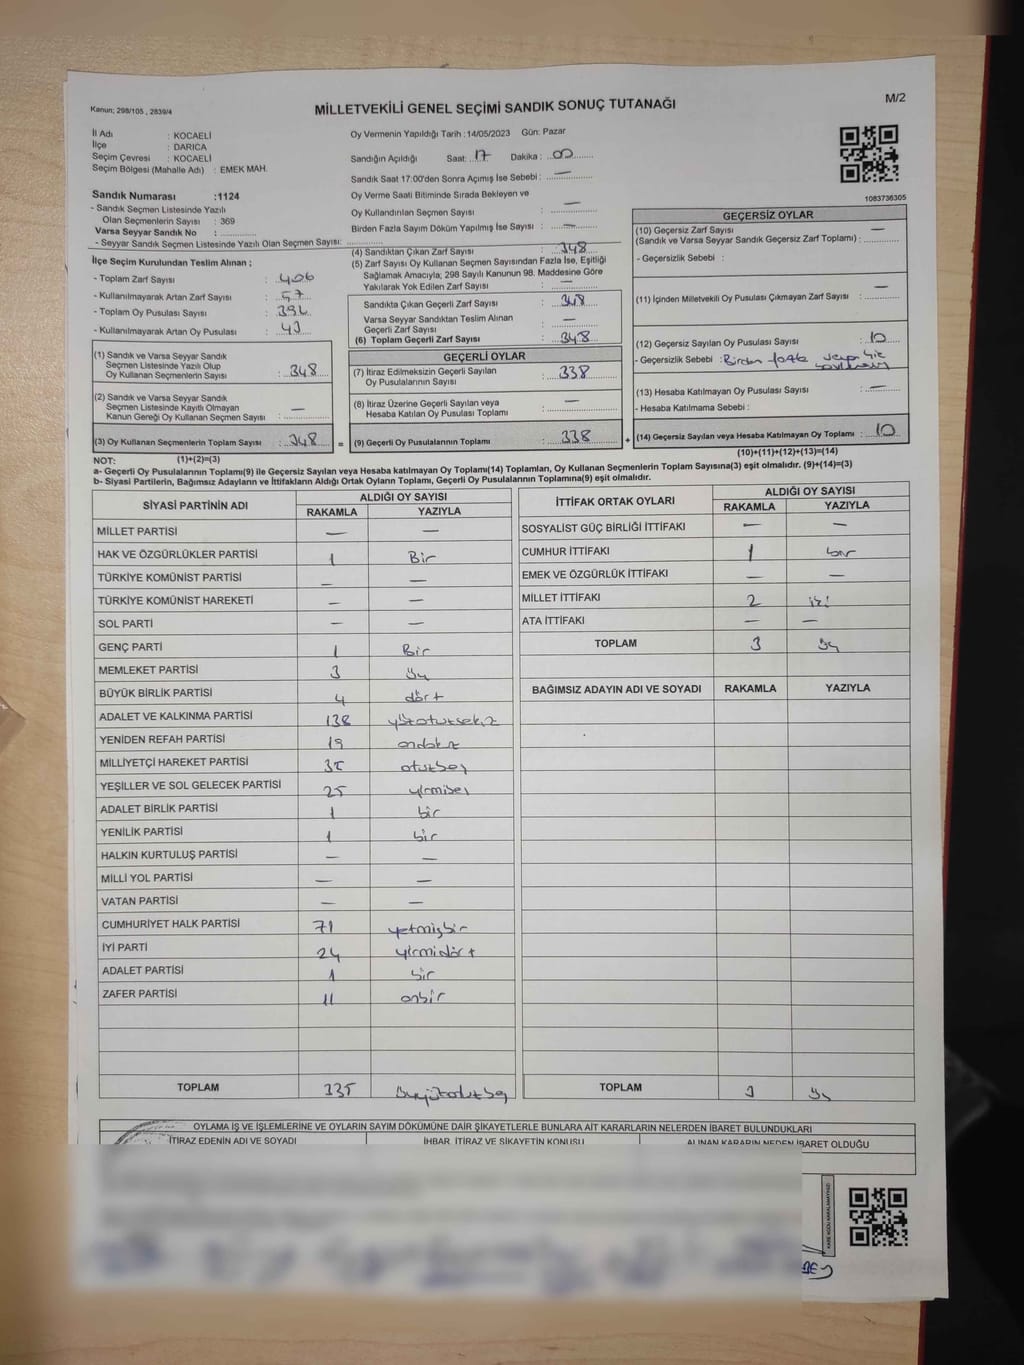 Kanun: 298/105 , 2839/4
MİLLETVEKİLİ GENEL SEÇİMİ SANDIK SONUÇ TUTANAĞI
M/2
İl Adı : KOCAELİ
İlçe : DARICA
Seçim Çevresi : KOCAELİ
Seçim Bölgesi (Mahalle Adı) : EMEK MAH.
Oy Vermenin Yapıldığı Tarih : 14/05/2023 Gün: Pazar
Sandığın Açıldığı Saat: 17 Dakika : 00
Sandık Saat 17:00'den Sonra Açımış İse Sebebi : —
Oy Verme Saati Bitiminde Sırada Bekleyen ve
Oy Kullandırılan Seçmen Sayısı : —
Birden Fazla Sayım Döküm Yapılmış İse Sayısı : —
1083736305
Sandık Numarası :1124
- Sandık Seçmen Listesinde Yazılı
Olan Seçmenlerin Sayısı : 369
Varsa Seyyar Sandık No :
- Seyyar Sandık Seçmen Listesinde Yazılı Olan Seçmen Sayısı:
İlçe Seçim Kurulundan Teslim Alınan ;
- Toplam Zarf Sayısı : 406
- Kullanılmayarak Artan Zarf Sayısı : 57
- Toplam Oy Pusulası Sayısı :
- Kullanılmayarak Artan Oy Pusulası : 43
(1) Sandık ve Varsa Seyyar Sandık
Seçmen Listesinde Yazılı Olup
Oy Kullanan Seçmenlerin Sayısı : 348
(2) Sandık ve Varsa Seyyar Sandık
Seçmen Listesinde Kayıtlı Olmayan
Kanun Gereği Oy Kullanan Seçmen Sayısı : —
(3) Oy Kullanan Seçmenlerin Toplam Sayısı : 348 =
(4) Sandıktan Çıkan Zarf Sayısı : 348
(5) Zarf Sayısı Oy Kullanan Seçmen Sayısından Fazla İse, Eşitliği
Sağlamak Amacıyla; 298 Sayılı Kanunun 98. Maddesine Göre
Yakılarak Yok Edilen Zarf Sayısı : —
Sandıkta Çıkan Geçerli Zarf Sayısı : 348
Varsa Seyyar Sandıktan Teslim Alınan
Geçerli Zarf Sayısı : —
(6) Toplam Geçerli Zarf Sayısı : 348
GEÇERLİ OYLAR
(7) İtiraz Edilmeksizin Geçerli Sayılan
Oy Pusulalarının Sayısı : 338
(8) İtiraz Üzerine Geçerli Sayılan veya
Hesaba Katılan Oy Pusulası Toplamı : —
(9) Geçerli Oy Pusulalarının Toplamı : 338 +
GEÇERSİZ OYLAR
(10) Geçersiz Zarf Sayısı —
(Sandık ve Varsa Seyyar Sandık Geçersiz Zarf Toplamı) :
- Geçersizlik Sebebi :
(11) İçinden Milletvekili Oy Pusulası Çıkmayan Zarf Sayısı : —
(12) Geçersiz Sayılan Oy Pusulası Sayısı : 10
- Geçersizlik Sebebi : Birden fazla veya hiç
(13) Hesaba Katılmayan Oy Pusulası Sayısı : —
- Hesaba Katılmama Sebebi :
(14) Geçersiz Sayılan veya Hesaba Katılmayan Oy Toplamı : 10
NOT: (1)+(2)=(3)
(10)+(11)+(12)+(13)=(14)
a- Geçerli Oy Pusulalarının Toplamı(9) ile Geçersiz Sayılan veya Hesaba katılmayan Oy Toplamı(14) Toplamları, Oy Kullanan Seçmenlerin Toplam Sayısına(3) eşit olmalıdır. (9)+(14)=(3)
b- Siyasi Partilerin, Bağımsız Adayların ve İttifakların Aldığı Ortak Oyların Toplamı, Geçerli Oy Pusulalarının Toplamına(9) eşit olmalıdır.
SİYASİ PARTİNİN ADI ALDIĞI OY SAYISI
RAKAMLA YAZIYLA
MİLLET PARTİSİ — —
HAK VE ÖZGÜRLÜKLER PARTİSİ 1 Bir
TÜRKİYE KOMÜNİST PARTİSİ — —
TÜRKİYE KOMÜNİST HAREKETİ — —
SOL PARTİ — —
GENÇ PARTİ 1 Bir
MEMLEKET PARTİSİ 3 üç
BÜYÜK BİRLİK PARTİSİ 4 dört
ADALET VE KALKINMA PARTİSİ 138 yüzotuzsekiz
YENİDEN REFAH PARTİSİ 19 ondokuz
MİLLİYETÇİ HAREKET PARTİSİ 35 otuzbeş
YEŞİLLER VE SOL GELECEK PARTİSİ 25 yirmibeş
ADALET BİRLİK PARTİSİ 1 bir
YENİLİK PARTİSİ 1 bir
HALKIN KURTULUŞ PARTİSİ — —
MİLLİ YOL PARTİSİ — —
VATAN PARTİSİ — —
CUMHURİYET HALK PARTİSİ 71 yetmişbir
İYİ PARTİ 24 yirmidört
ADALET PARTİSİ 1 bir
ZAFER PARTİSİ 11 onbir
TOPLAM 335 üçyüzotuzbeş
İTTİFAK ORTAK OYLARI ALDIĞI OY SAYISI
RAKAMLA YAZIYLA
SOSYALİST GÜÇ BİRLİĞİ İTTİFAKI — —
CUMHUR İTTİFAKI 1 bir
EMEK VE ÖZGÜRLÜK İTTİFAKI — —
MİLLET İTTİFAKI 2 iki
ATA İTTİFAKI — —
TOPLAM 3 üç
BAĞIMSIZ ADAYIN ADI VE SOYADI RAKAMLA YAZIYLA
TOPLAM 3 üç
OYLAMA İŞ VE İŞLEMLERİNE VE OYLARIN SAYIM DÖKÜMÜNE DAİR ŞİKAYETLERLE BUNLARA AİT KARARLARIN NELERDEN İBARET BULUNDUKLARI
İTİRAZ EDENİN ADI VE SOYADI İHBAR, İTİRAZ VE ŞİKAYETİN KONUSU ALINAN KARARIN NEDEN İBARET OLDUĞU